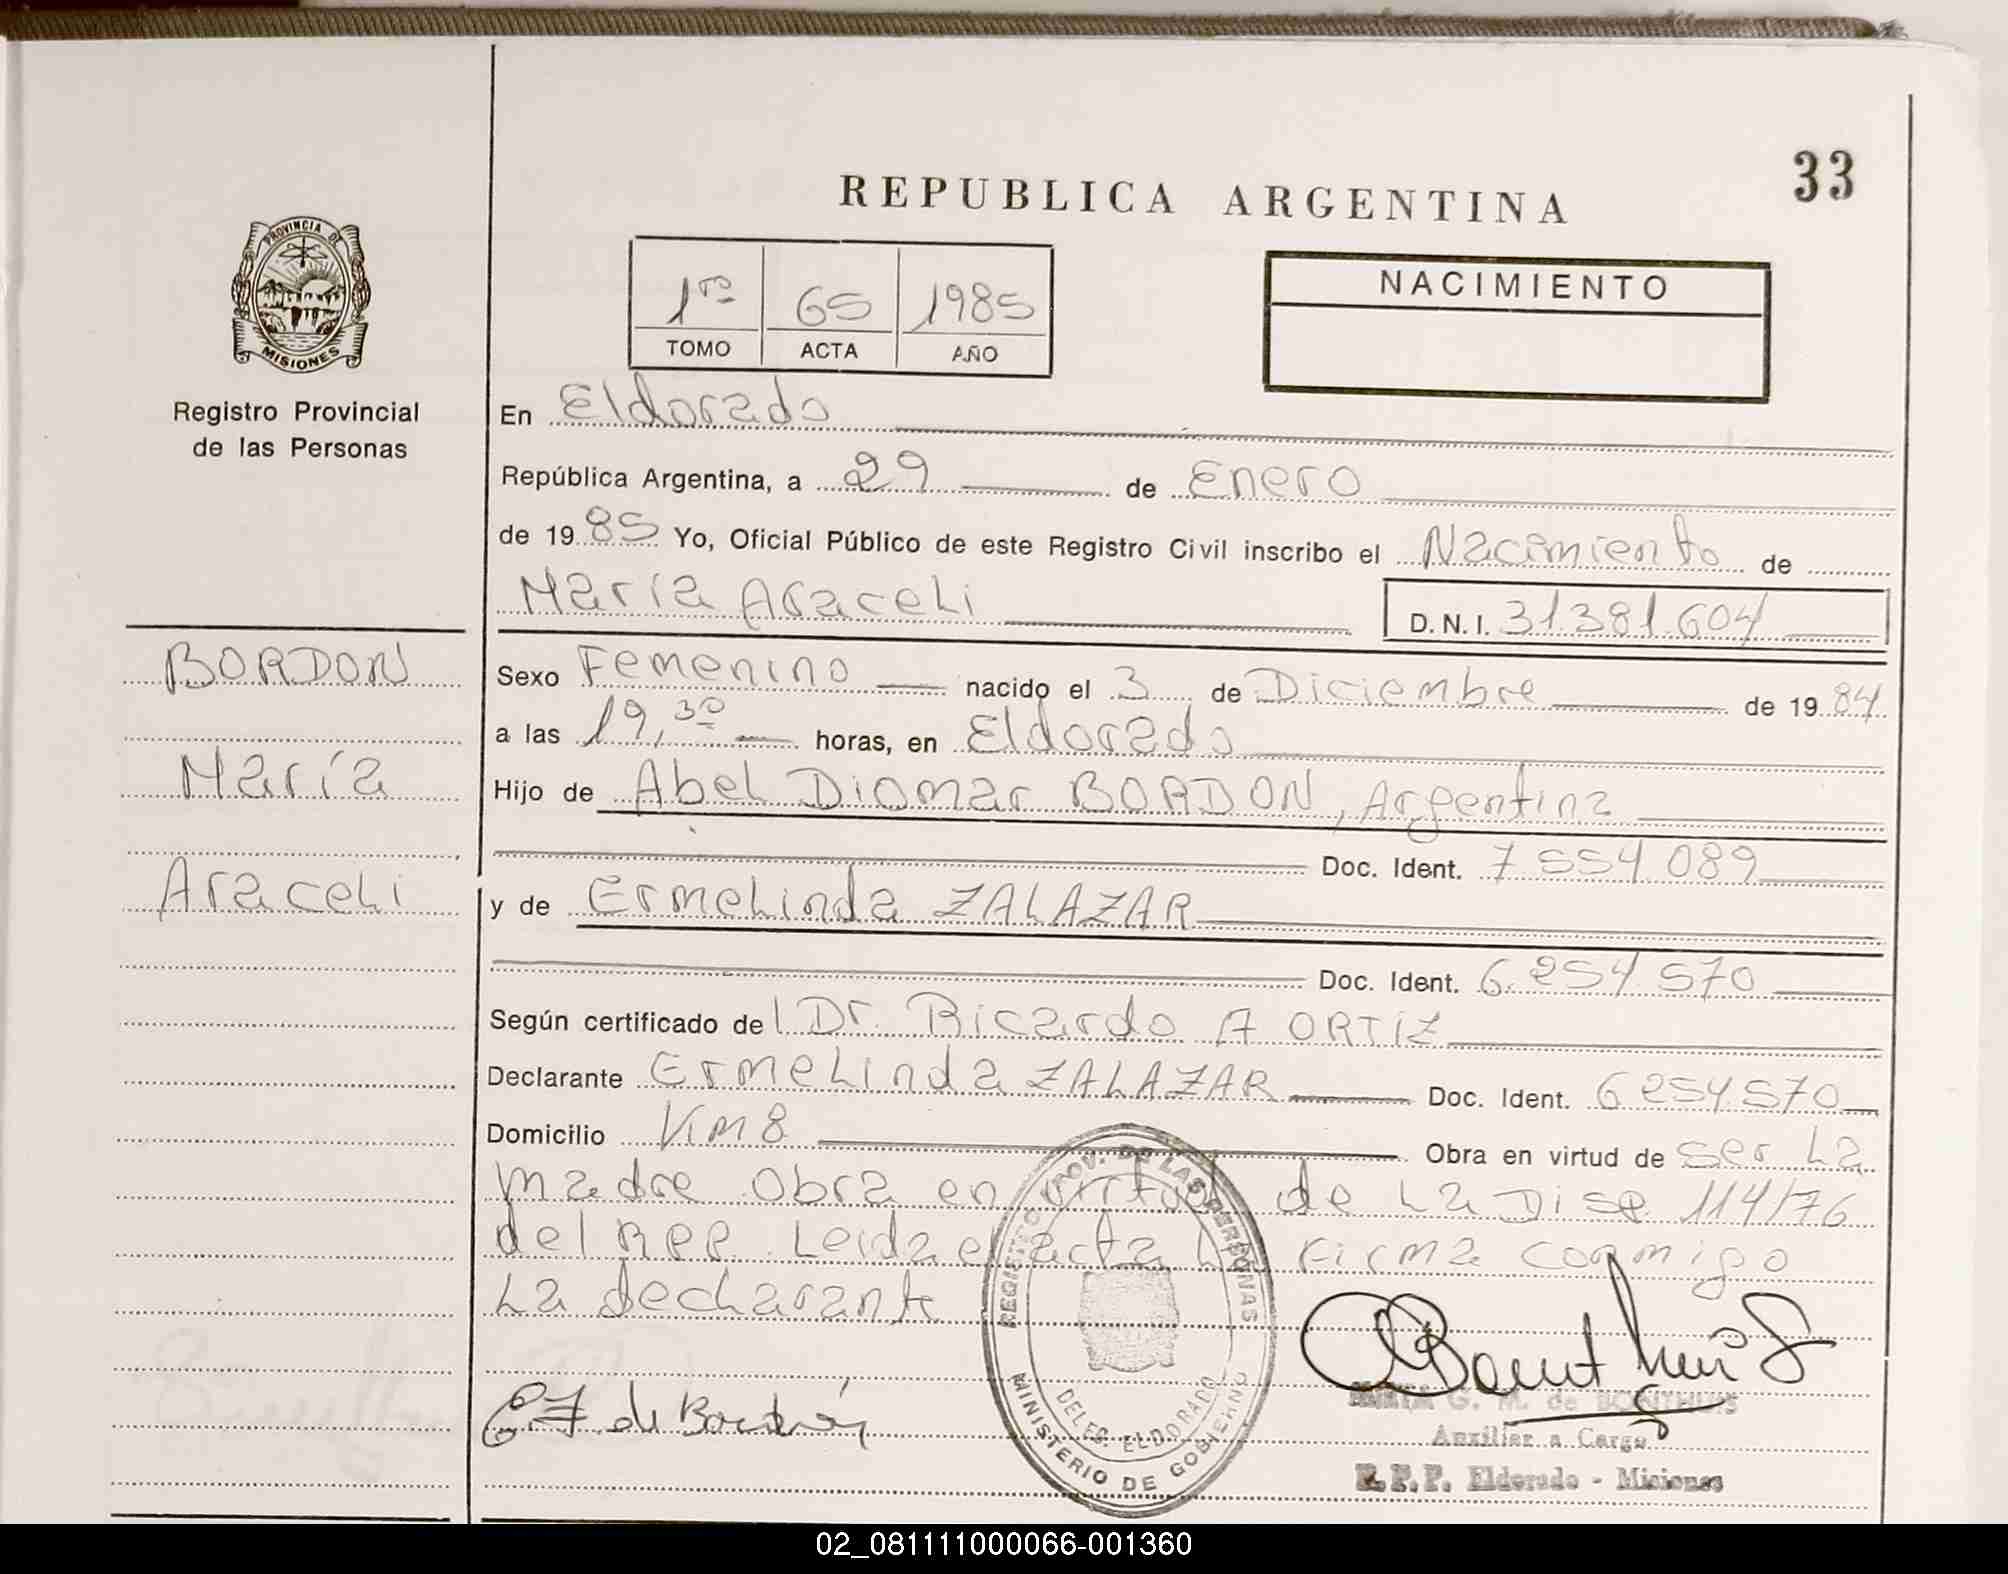 33
REPUBLICA ARGENTINA
PROVINCIA DE
MISIONES
Registro Provincial
de las Personas
1ro 65 1985
TOMO ACTA AÑO
NACIMIENTO
En Eldorado
República Argentina, a 29 de Enero
de 1985 Yo, Oficial Público de este Registro Civil inscribo el Nacimiento de
María Araceli D.N.I. 31.381.604
BORDON
María
Araceli
Sexo Femenino nacido el 3 de Diciembre de 1984
a las 19,30 horas, en Eldorado
Hijo de Abel Diomar BORDON, Argentina
Doc. Ident. 7.554.089
y de Ermelinda ZALAZAR
Doc. Ident. 6.254.570
Según certificado del Dr. Ricardo A ORTIZ
Declarante Ermelinda ZALAZAR Doc. Ident. 6254570
Domicilio Km 8 Obra en virtud de ser La
madre obra en virtud de La Disp 114/76
del RPP Leida el acta La Firma conmigo
La declarante
REGISTRO PROV. DE LAS PERSONAS
DELEG. ELDORADO
MINISTERIO DE GOBIERNO
E Z de Bordón
G. M. de BONTHUIS
Auxiliar a Cargo
R.P.P. Eldorado - Misiones
02_081111000066-001360